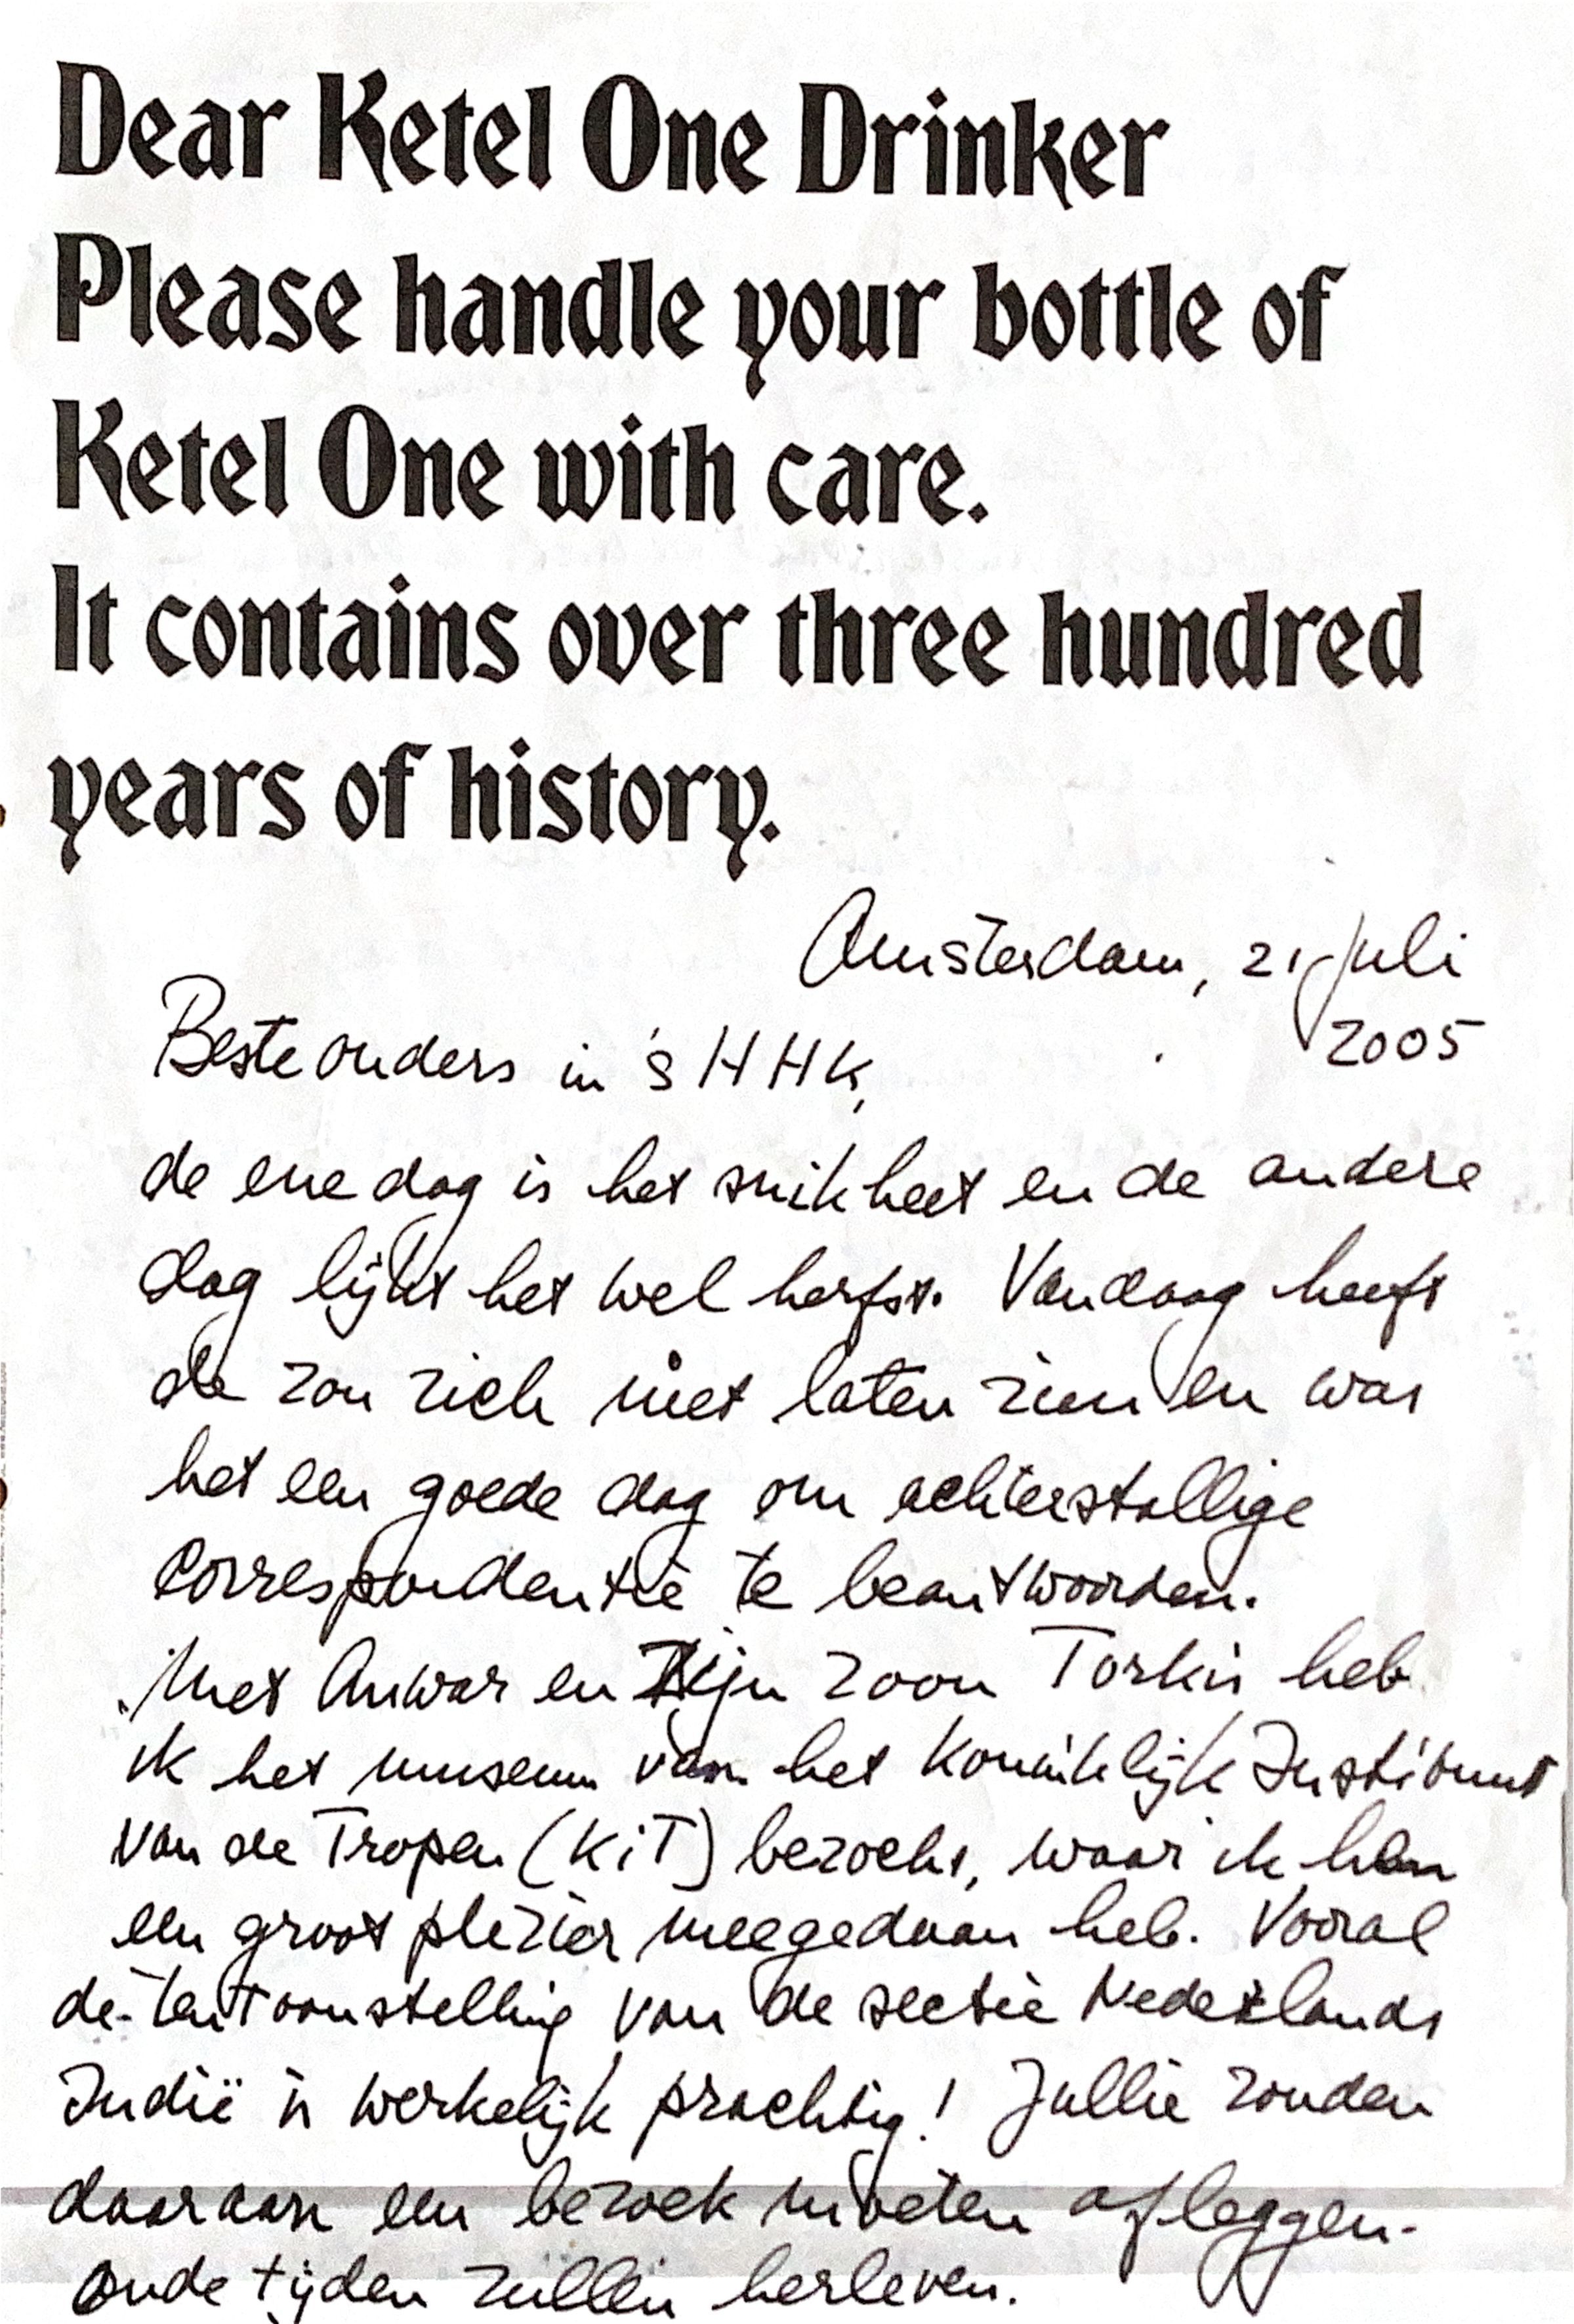 Dear Ketel One Drinker
Please handle your bottle of
Ketel One with care.
It contains over three hundred
years of history.
Amsterdam, 21 juli
2005
Beste ouders in 's HHK,
de ene dag is het snikheet en de andere
dag lijkt het wel herfst. Vandaag heeft
de zon zich niet laten zien en was
het een goede dag om achterstallige
correspondentie te beantwoorden.
Met Anwar en zijn zoon Torkis heb
ik het museum van het Koninklijk Instituut
van de Tropen (KiT) bezocht, waar ik hen
een groot plezier meegedaan heb. Vooral
de tentoonstelling van de sectie Nederlands
Indië is werkelijk prachtig! Jullie zouden
daaraan een bezoek moeten afleggen.
Oude tijden zullen herleven.